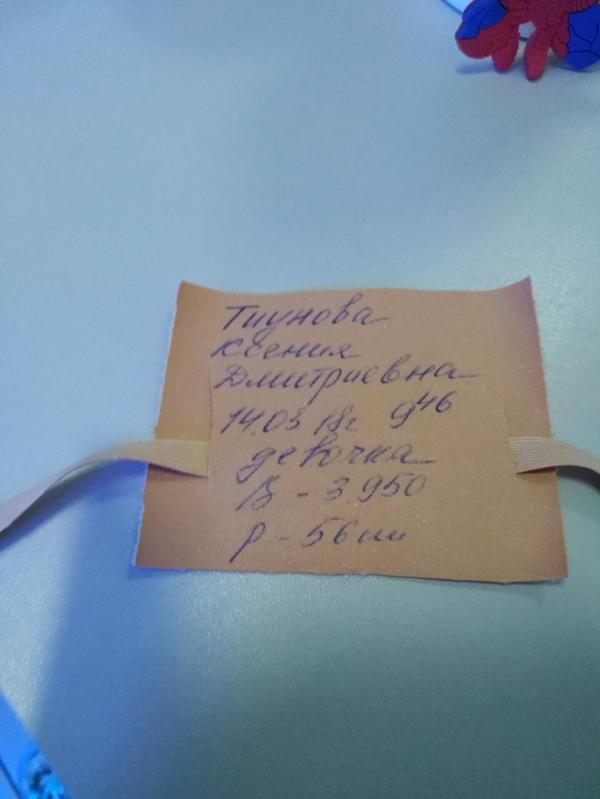 Тиунова
Ксения
Дмитриевна
14.03 18г 9 46
девочка
В - 3 950
р - 56 см